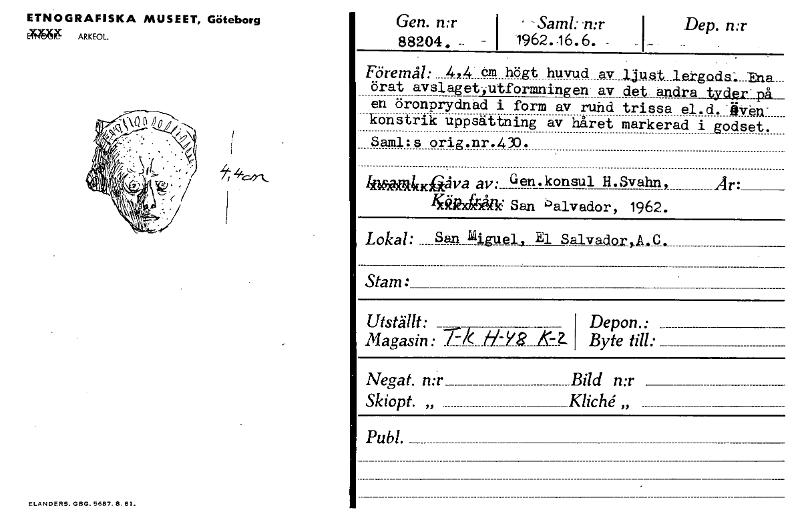 ETNOGRAFISKA MUSEET, Göteborg
ARKEOL.
4,4 cm
ELANDERS. GBG. 5687. 8. 61.
Gen. n:r Saml. n:r Dep. n:r
88204. 1962.16.6.
Föremål: 4,4 cm högt huvud av ljust lergods. Ena
örat avslaget,utformningen av det andra tyder på
en öronprydnad i form av rund trissa el.d. även
konstrik uppsättning av håret markerad i godset.
Saml:s orig.nr.430.
Insaml. Gåva av: Gen.konsul H.Svahn, År:
Köp från: San Salvador, 1962.
Lokal: San Miguel, El Salvador,A.C.
Stam:
Utställt: Depon.:
Magasin: T-K H-48 K-2 Byte till:
Negat. n:r Bild n:r
Skiopt. „ Kliché „
Publ.